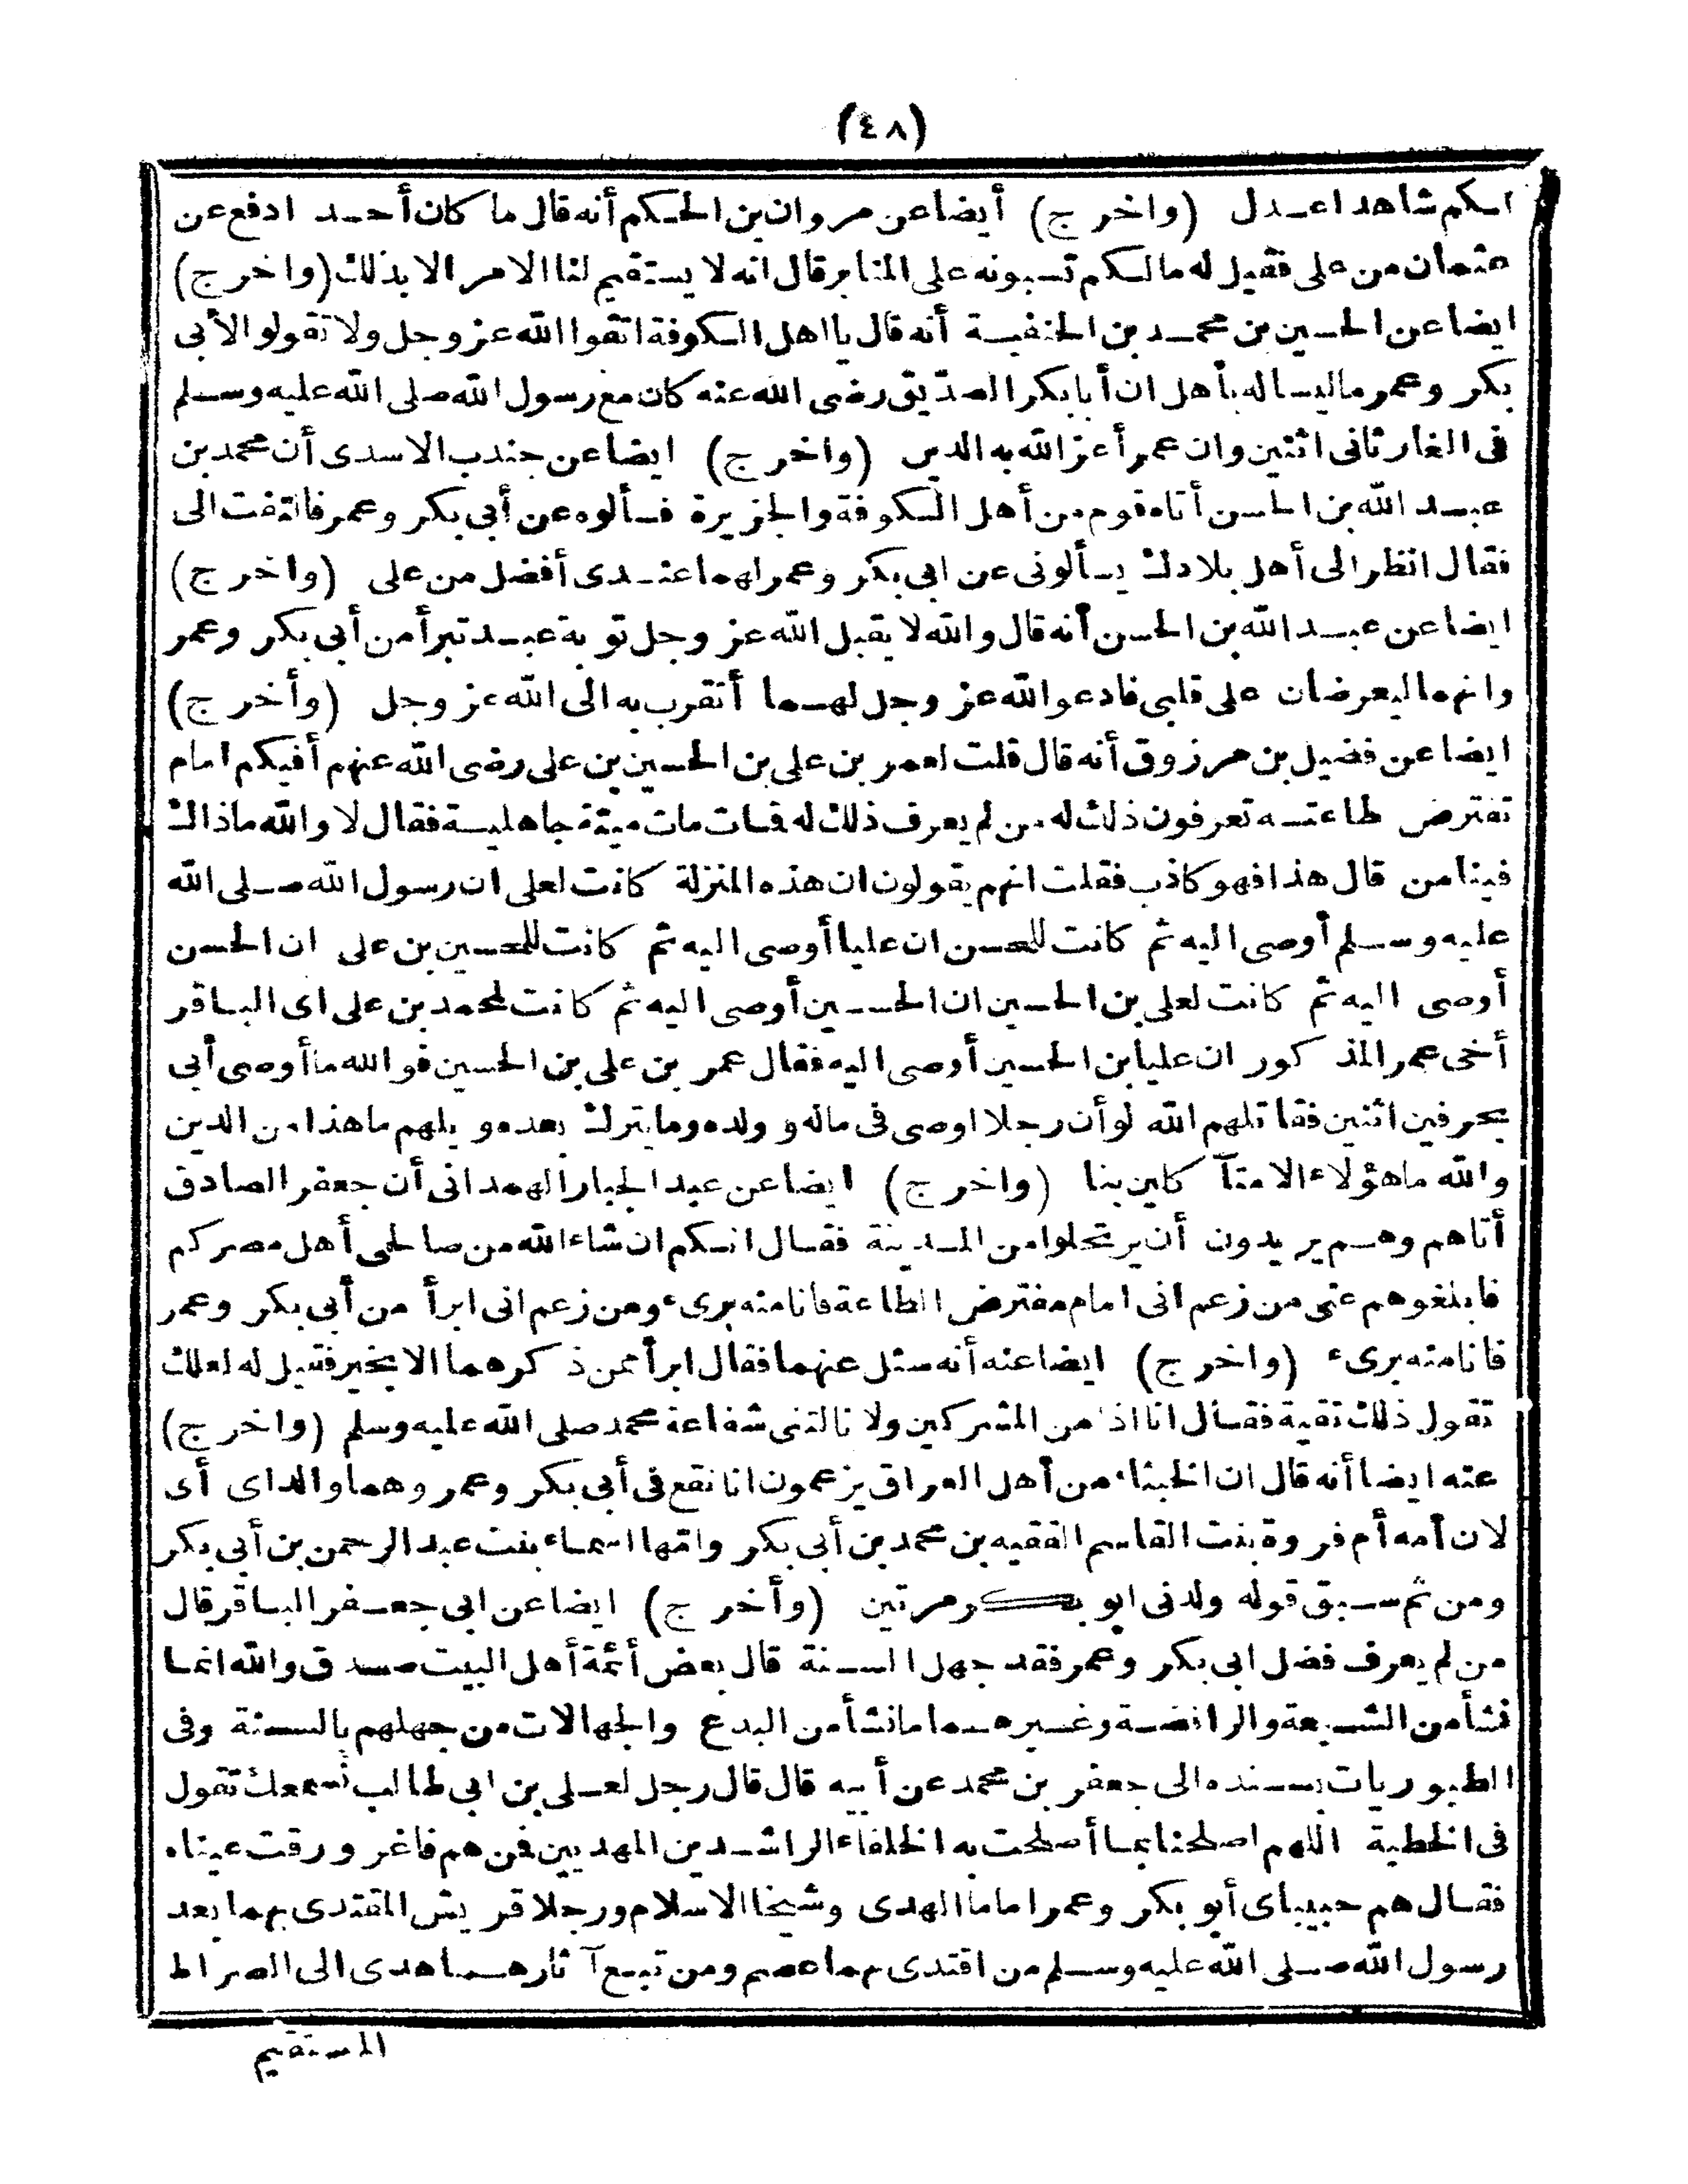 (٤٨)
لكم شاهدا عدل (واخرج) أيضا عن مروان بن الحكم أنه قال ما كان أحد ادفع عن
عثمان من على فقيل له مالكم تسبونه على المنابر قال انه لا يستقيم لنا الامر الا بذلك (واخرج)
ايضا عن الحسين بن محمد بن الحنفية أنه قال يا اهل الكوفة اتقوا الله عز وجل ولا تقولوا لأبى
بكر وعمر ما ليسا له بأهل ان أبا بكر الصديق رضى الله عنه كان مع رسول الله صلى الله عليه وسلم
فى الغار ثانى اثنين وان عمر أعز الله به الدين (واخرج) ايضا عن جندب الاسدى أن محمد بن
عبد الله بن الحسن أتاه قوم من أهل الكوفة والجزيرة فسألوه عن أبى بكر وعمر فالتفت الى
فقال انظر الى أهل بلادك يسألونى عن ابى بكر وعمر لهما عندى أفضل من على (واخرج)
ايضا عن عبد الله بن الحسن أنه قال والله لا يقبل الله عز وجل توبة عبد تبرأ من أبى بكر وعمر
وانهما ليعرضان على قلبى فادعو الله عز وجل لهما أتقرب به الى الله عز وجل (وأخرج)
ايضا عن فضيل بن مرزوق أنه قال قلت لعمر بن على بن الحسين بن على رضى الله عنهم أفيكم امام
تفترض طاعته تعرفون ذلك له من لم يعرف ذلك له فمات مات ميتة جاهلية فقال لا والله ماذاك
فينا من قال هذا فهو كاذب فقلت انهم يقولون ان هذه المنزلة كانت لعلى ان رسول الله صلى الله
عليه وسلم أوصى اليه ثم كانت للحسن ان عليا أوصى اليه ثم كانت للحسين بن على ان الحسن
أوصى اليه ثم كانت لعلى بن الحسين ان الحسين أوصى اليه ثم كانت لمحمد بن على اى الباقر
أخى عمر المذكور ان عليا بن الحسين أوصى اليه فقال عمر بن على بن الحسين فو الله ما أوصى أبى
بحرفين اثنين فقاتلهم الله لو أن رجلا اوصى فى ماله و ولده وما يترك بعده و يلهم ما هذا من الدين
والله ما هؤلاء الا متآ كلين بنا (واخرج) ايضا عن عبد الجبار الهمدانى أن جعفر الصادق
أتاهم وهم يريدون أن يرتحلوا من المدينة فقال انكم ان شاء الله من صالحى أهل مصركم
فابلغوهم عنى من زعم انى امام مفترض الطاعة فانا منه برىء ومن زعم انى ابرأ من أبى بكر وعمر
فانا منه برىء (واخرج) ايضا عنه أنه سئل عنهما فقال ابرأ ممن ذكرهما الا بخير فقيل له لعلك
تقول ذلك تقية فقال انا اذا من المشركين ولا نالتنى شفاعة محمد صلى الله عليه وسلم (واخرج)
عنه ايضا أنه قال ان الخبثاء من أهل العراق يزعمون انا نقع فى أبى بكر وعمر وهما والداى أى
لان أمه أم فروة بنت القاسم الفقيه بن محمد بن أبى بكر وامّها اسماء بنت عبد الرحمن بن أبى بكر
ومن ثم سبق قوله ولدنى ابو بكر مرتين (وأخرج) ايضا عن ابى جعفر الباقر قال
من لم يعرف فضل ابى بكر وعمر فقد جهل السنة قال بعض أئمة أهل البيت صدق والله انما
نشأ من الشيعة والرافضة وغيرهما ما نشأ من البدع والجهالات من جهلهم بالسنة وفى
الطيوريات بسنده الى جعفر بن محمد عن أبيه قال قال رجل لعلى بن ابى طالب نسمعك تقول
فى الخطبة اللهم اصلحنا بما أصلحت به الخلفاء الراشدين المهديين فمن هم فاغر و رقت عيناه
فقال هم حبيباى أبو بكر وعمر اماما الهدى وشيخا الاسلام ورجلا قريش المقتدى بهما بعد
رسول الله صلى الله عليه وسلم من اقتدى بهما عصم ومن تبع آ ثارهما هدى الى الصراط
المستقيم